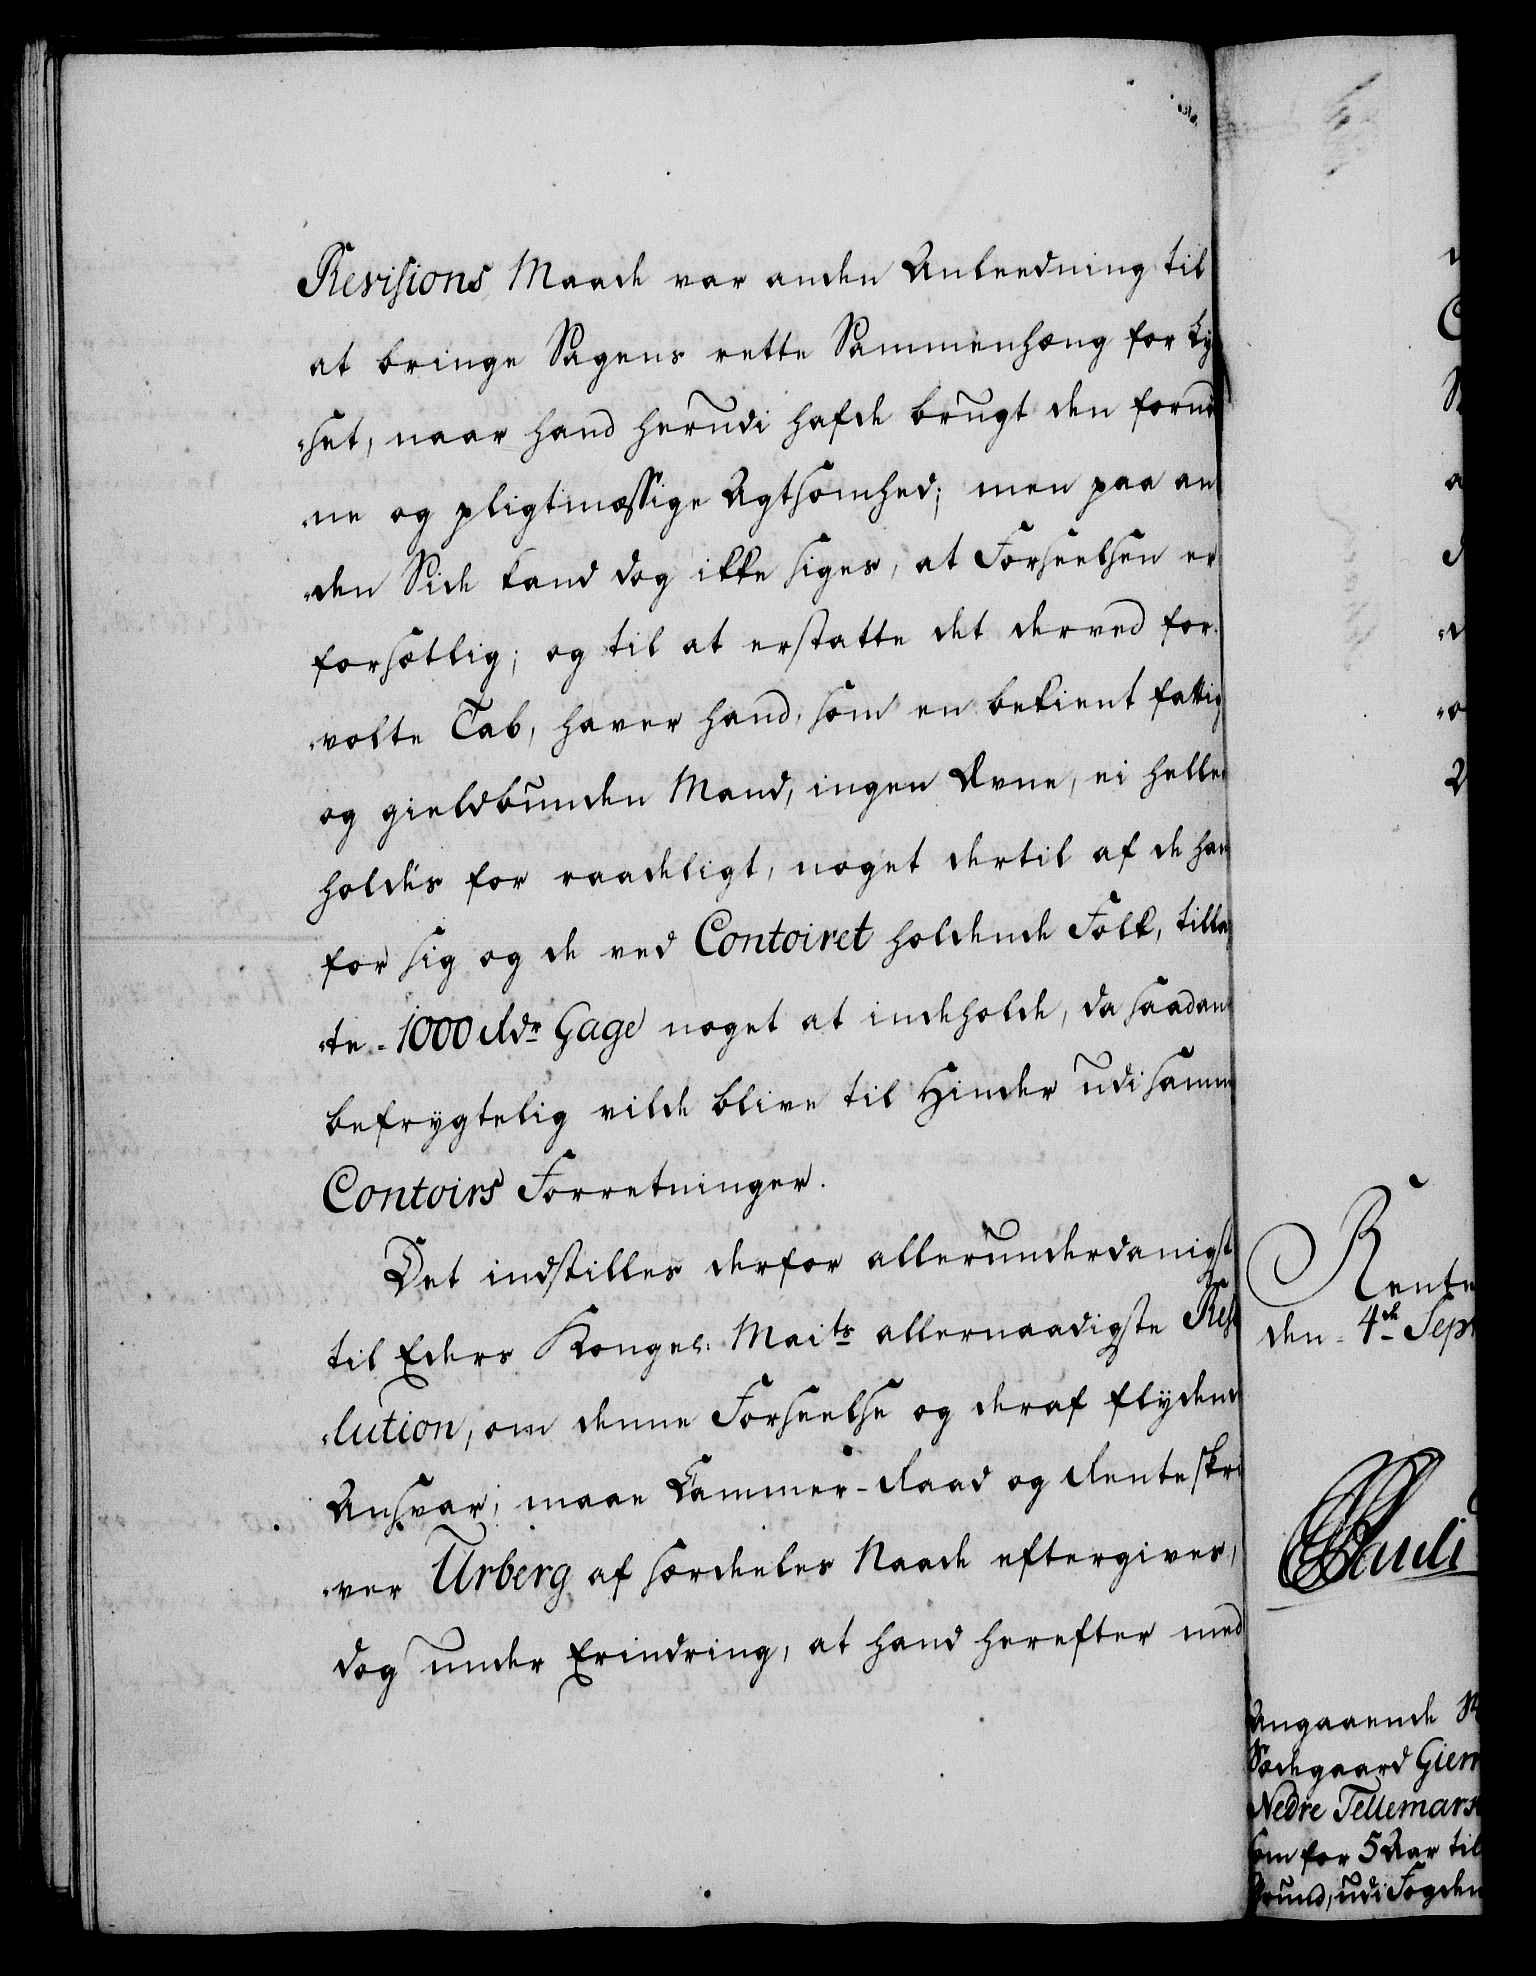 Revisions Maade var anden Anleedning til
at bringe Sagens rette Sammenhæng for Ly
-set, naar hand herudi hafde brugt den fornød
-ne og pligtmæssige Agtsomhed; men paa an
-den Side kand dog ikke siges, at Forseelsen er
forsætlig; og til at erstatte det derved for-
-volte Tab, haver hand, som en bekient fattig
og gieldbunden Mand, ingen Evne, ei heller
holdes for raadeligt, noget dertil af de ham
for sig og de ved Contoiret holdende Folk, tillag
-te - 1000 Rdr Gage noget at indeholde, da saadant
befrygtelig vilde blive til Hinder udi samme
Contoirs Forretninger.
Det indstilles derfor allerunderdanigst
til Eders Kongel: Maits allernaadigste Reso
-lution, om denne Forseelse og deraf flydende
Ansvar, maae Cammer-Raad og Renteskri
-ver Urberg af særdeeles Naade eftergives,
dog under Erindring, at hand herefter med
Rente
den 4de Sept
Pauli
Angaaende
Ødegaard Giern
Nedre Tellemark
som for 5 Aar til
Grund, udi Fogden